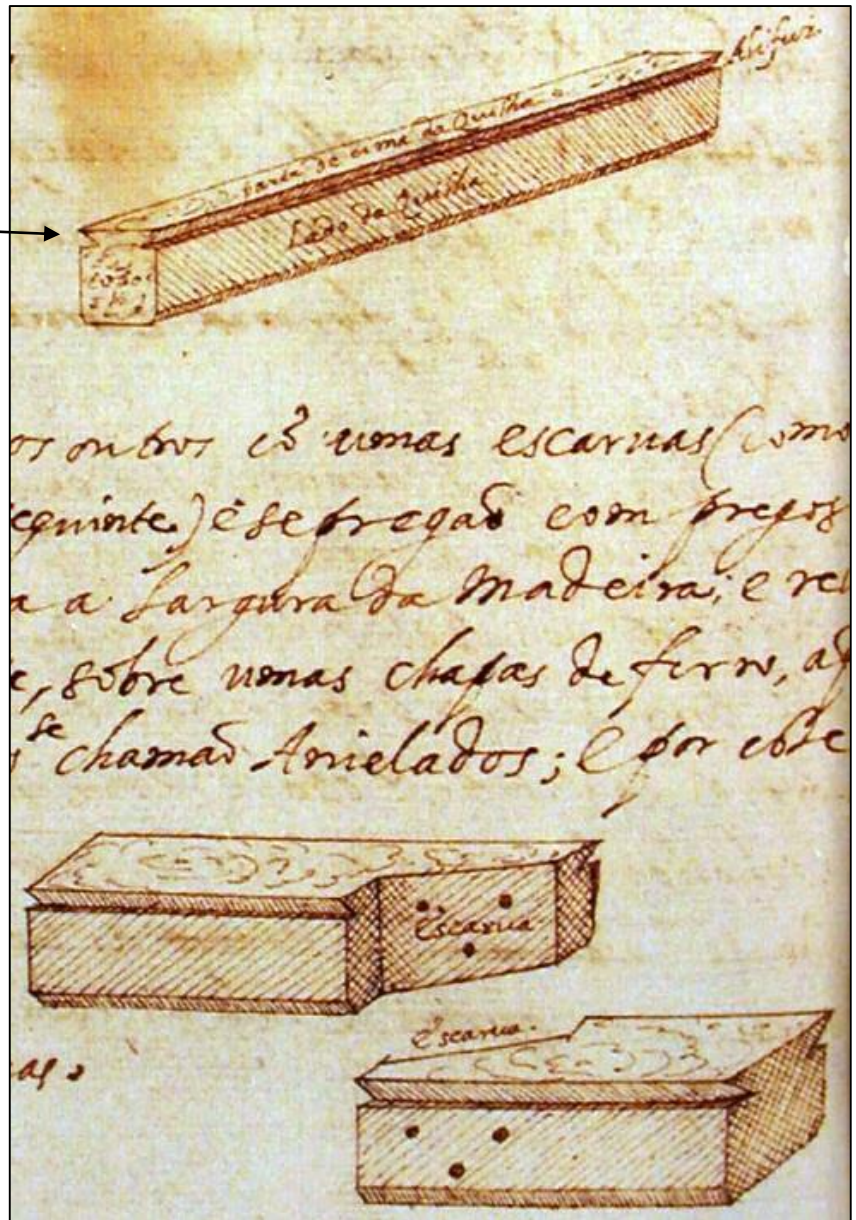 Alifriz
parte de cima da Quilha
Lado da Quilha
os outros cõ umas escaruas (como
seguinte) e se pregaõ com pregos
a a Largura da Madeira; e re
e, sobre umas chapas de ferro, a
se chamaõ Anielados; e por este
escarua
escarua.
as.